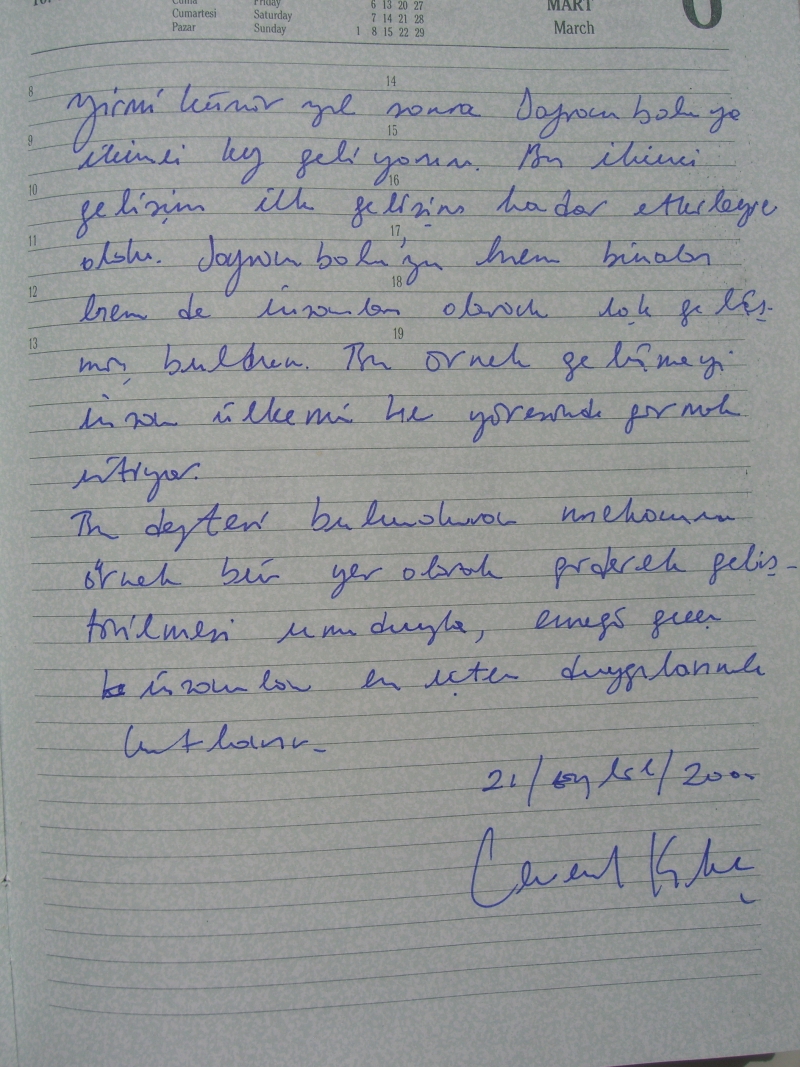 Cuma Friday 6 13 20 27 MART
Cumartesi Saturday 7 14 21 28 March 6
Pazar Sunday 1 8 15 22 29
8 14
yirmi küsür yıl sonra Safranbolu ya
9 15
ikinci kez geliyorum. Bu ikinci
10 16
gelişim ilk gelişim kadar etkileyici
11 17
oldu. Safranbolu'yu hem binalar
12 18
hem de insanlar olarak çok geliş-
13 19
miş buldum. Bu örnek gelişmeyi
insan ülkemin her yöresinde görmek
istiyor.
Bu defteri bulunduran mekanın
örnek bir yer olarak giderek geliş-
tirilmesi umuduyla, emeği geçen
insanları en içten duygularımla
kutlarım.
21/eylül/2000